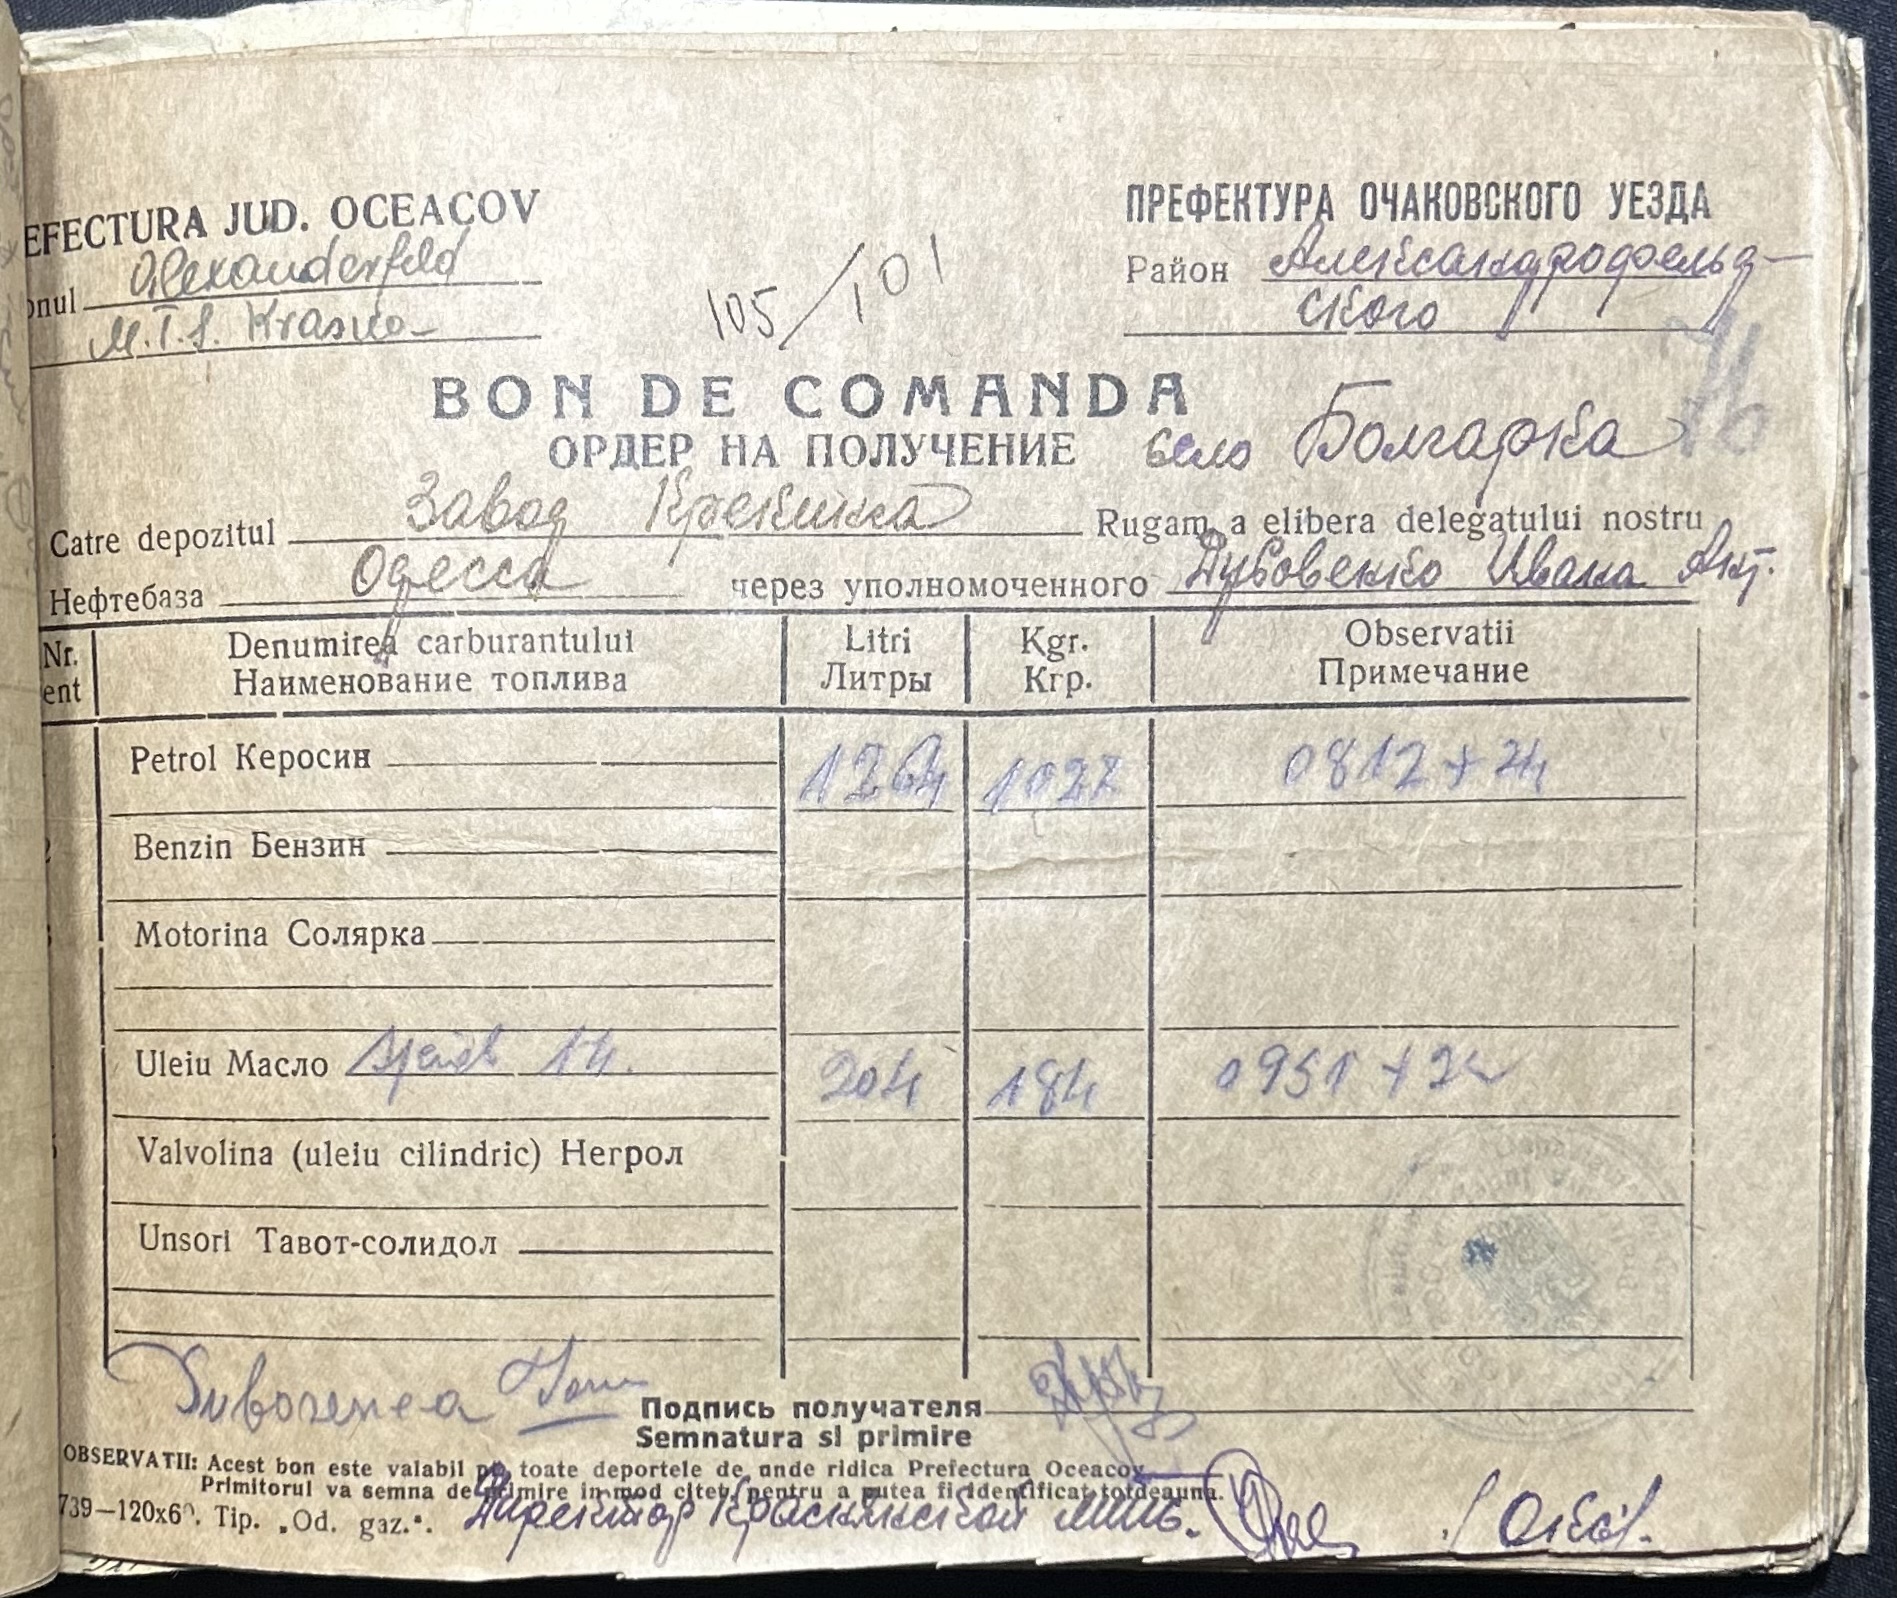 EFECTURA JUD. OCEACOV
onul Alexanderfeld
M.T.S. Krasno-
105/101
ПРЕФЕКТУРА ОЧАКОВСКОГО УЕЗДА
Район Александрофельд-
ского
BON DE COMANDA
ОРДЕР НА ПОЛУЧЕНИЕ село Болгарка
Catre depozitul Завод Крекинга Rugam a elibera delegatului nostru
Нефтебаза Одесса через уполномоченного Дубовенко Ивана Ант.
Nr. Denumirea carburantului Litri Kgr. Observatii
ent Наименование топлива Литры Кгр. Примечание
Petrol Керосин 1264 1027 0812+24
Benzin Бензин
Motorina Солярка
Uleiu Масло 14. 204 184 0951+24
Valvolina (uleiu cilindric) Негрол
Unsori Тавот-солидол
Подпись получателя
Semnatura si primire
OBSERVATII: Acest bon este valabil pe toate deportele de unde ridica Prefectura Oceacov
Primitorul va semna de primire in mod citet, pentru a putea fi identificat totdeauna.
739—120x60. Tip. „Od. gaz.“. Директор Краснянской мтс.